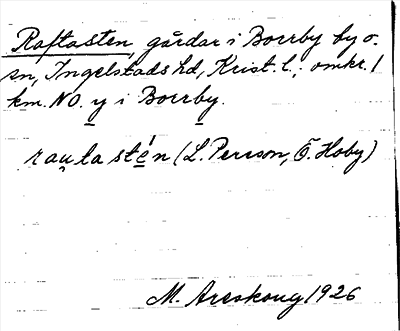 Raftasten, gårdar i Borrby by o.
sn, Ingelstads hd, Krist. l.; omkr. 1
km. NO. y i Borrby.
rau̯tasté̱n (L. Persson, Ö. Hoby)
M. Areskoug 1926